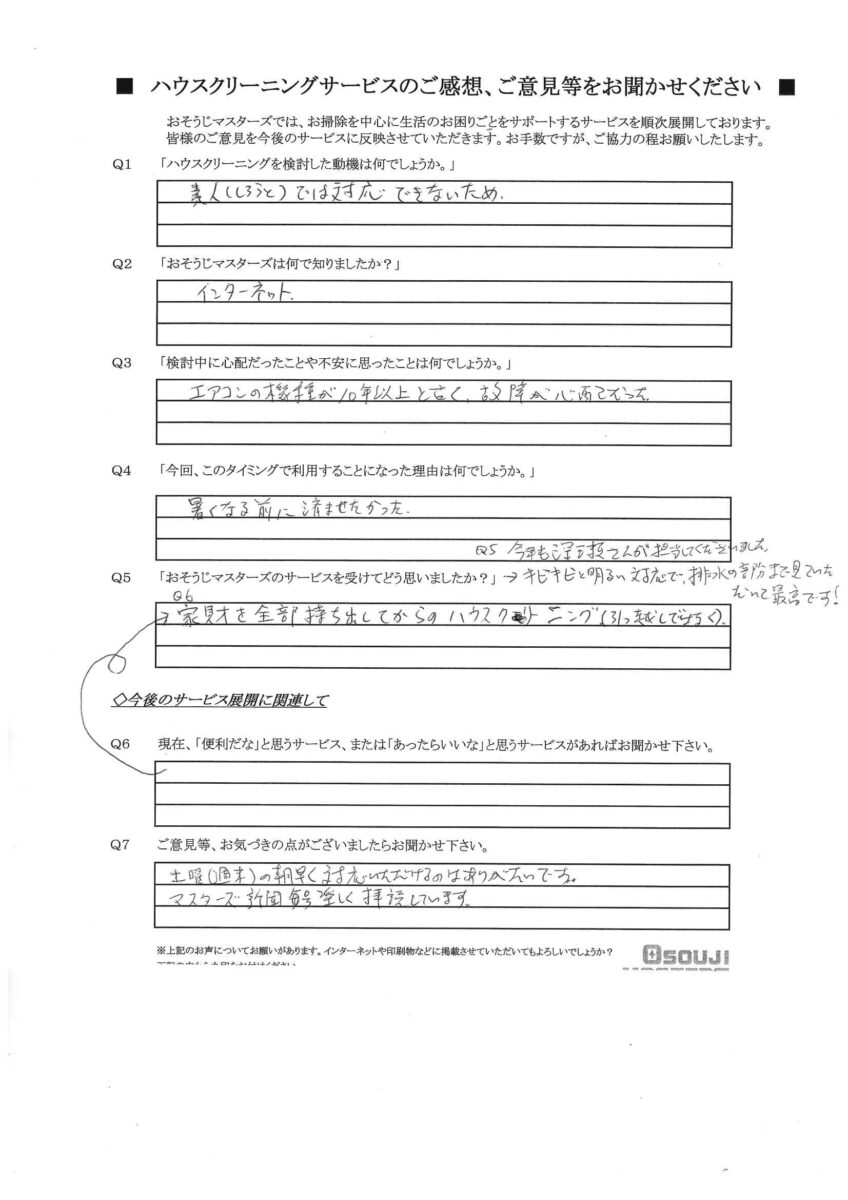 ■ ハウスクリーニングサービスのご感想、ご意見等をお聞かせください ■
おそうじマスターズでは、お掃除を中心に生活のお困りごとをサポートするサービスを順次展開しております。
皆様のご意見を今後のサービスに反映させていただきます。お手数ですが、ご協力の程お願いしたします。
Q1 「ハウスクリーニングを検討した動機は何でしょうか。」
素人(しろうと)では対応できないため.
Q2 「おそうじマスターズは何で知りましたか？」
インターネット.
Q3 「検討中に心配だったことや不安に思ったことは何でしょうか。」
エアコンの機種が10年以上と古く、故障が心配でした.
Q4 「今回、このタイミングで利用することになった理由は何でしょうか。」
暑くなる前に済ませたかった.
Q5 今年も さんが担当してくださいました。
Q5 「おそうじマスターズのサービスを受けてどう思いましたか？」 → キビキビと明るい対応で、排水の部分まで見ていた
だいて最高です!
Q6
→ 家財を全部持ち出してからのハウスクリーニング(引っ越しではなく).
◇今後のサービス展開に関連して
Q6 現在、「便利だな」と思うサービス、または「あったらいいな」と思うサービスがあればお聞かせ下さい。
Q7 ご意見等、お気づきの点がございましたらお聞かせ下さい。
土曜(週末)の朝早く対応いただけるのはありがたいです。
マスターズ新聞毎号楽しく拝読しています.
※上記のお声についてお願いがあります。インターネットや印刷物などに掲載させていただいてもよろしいでしょうか？
OSOUJI